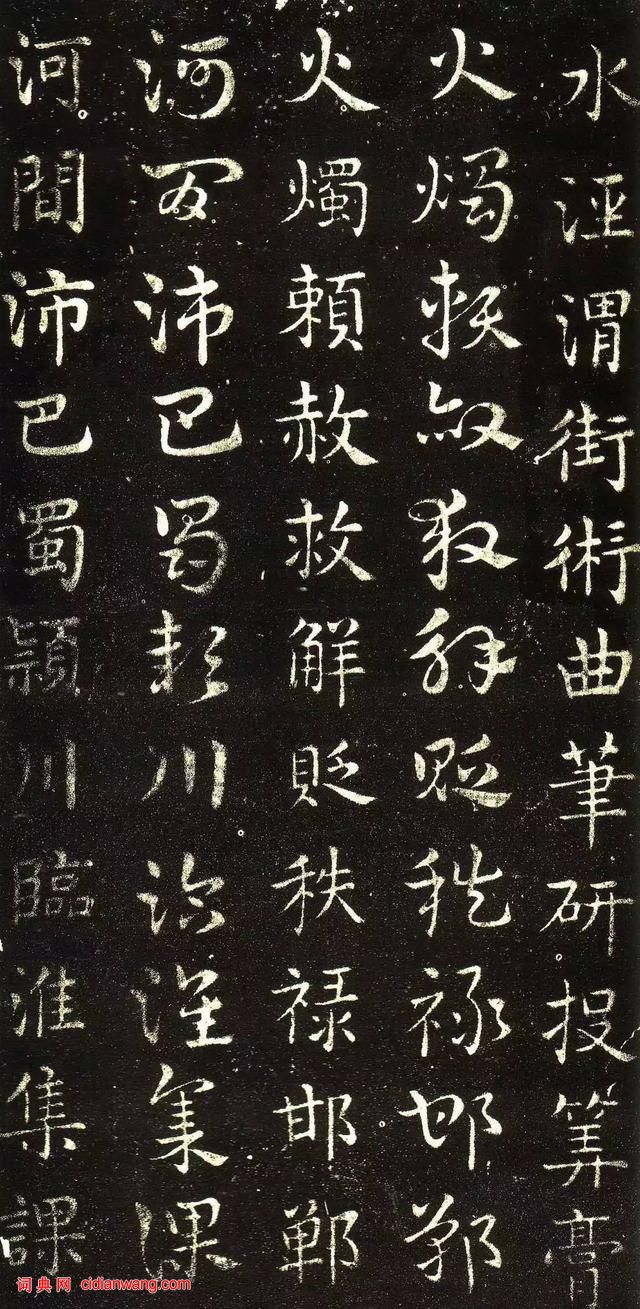 水涇渭街術曲筆研投筭膏
火燭賴赦救解貶秩禄邯鄲
火燭賴赦救解貶秩禄邯鄲
河間沛巴蜀潁川臨淮集課
河間沛巴蜀潁川臨淮集課
词典网 cidianwang.com